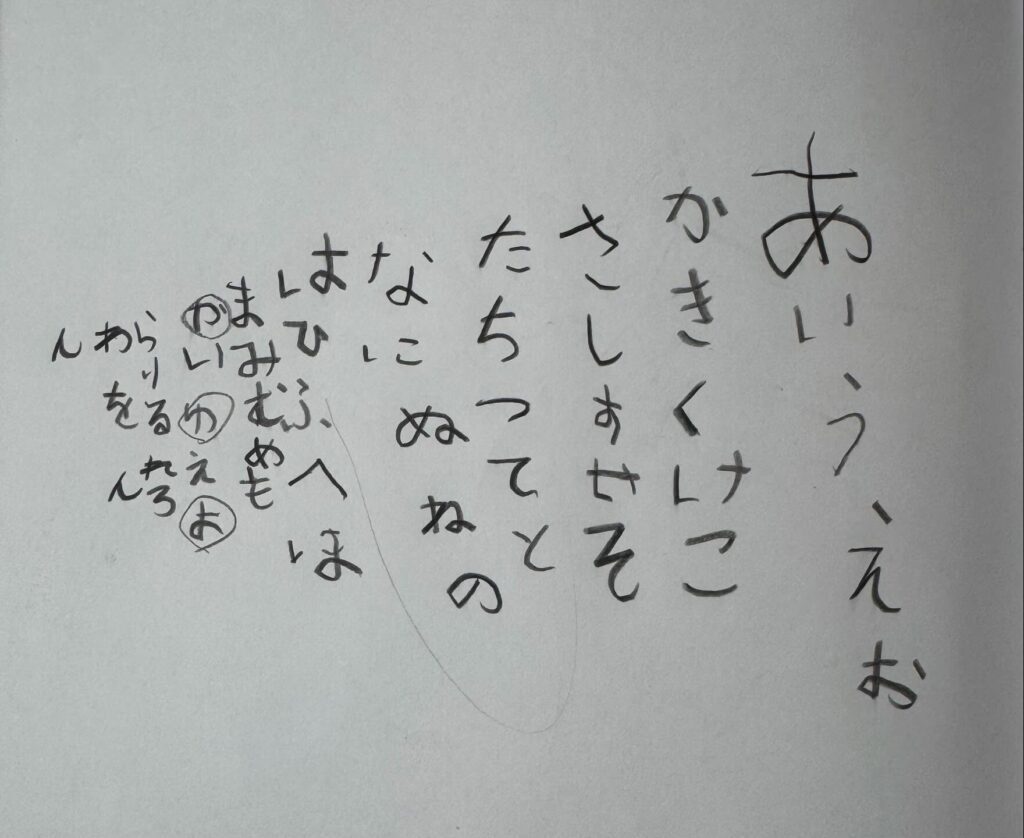 あいうえお
かきくけこ
さしすせそ
たちつてと
なにぬねの
はひふへほ
まみむめも
やいゆえよ
らりるれろ
わをん
ん